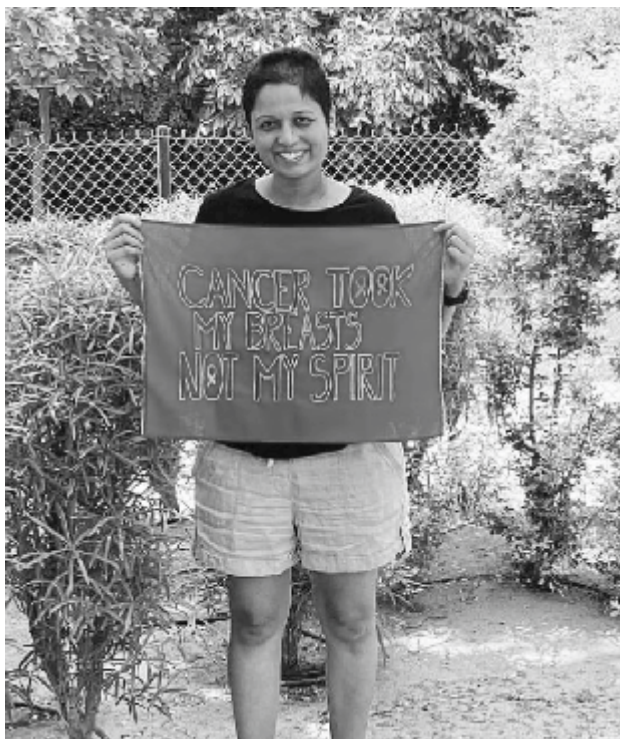 CANCER TOOK
MY BREASTS
NOT MY SPIRIT